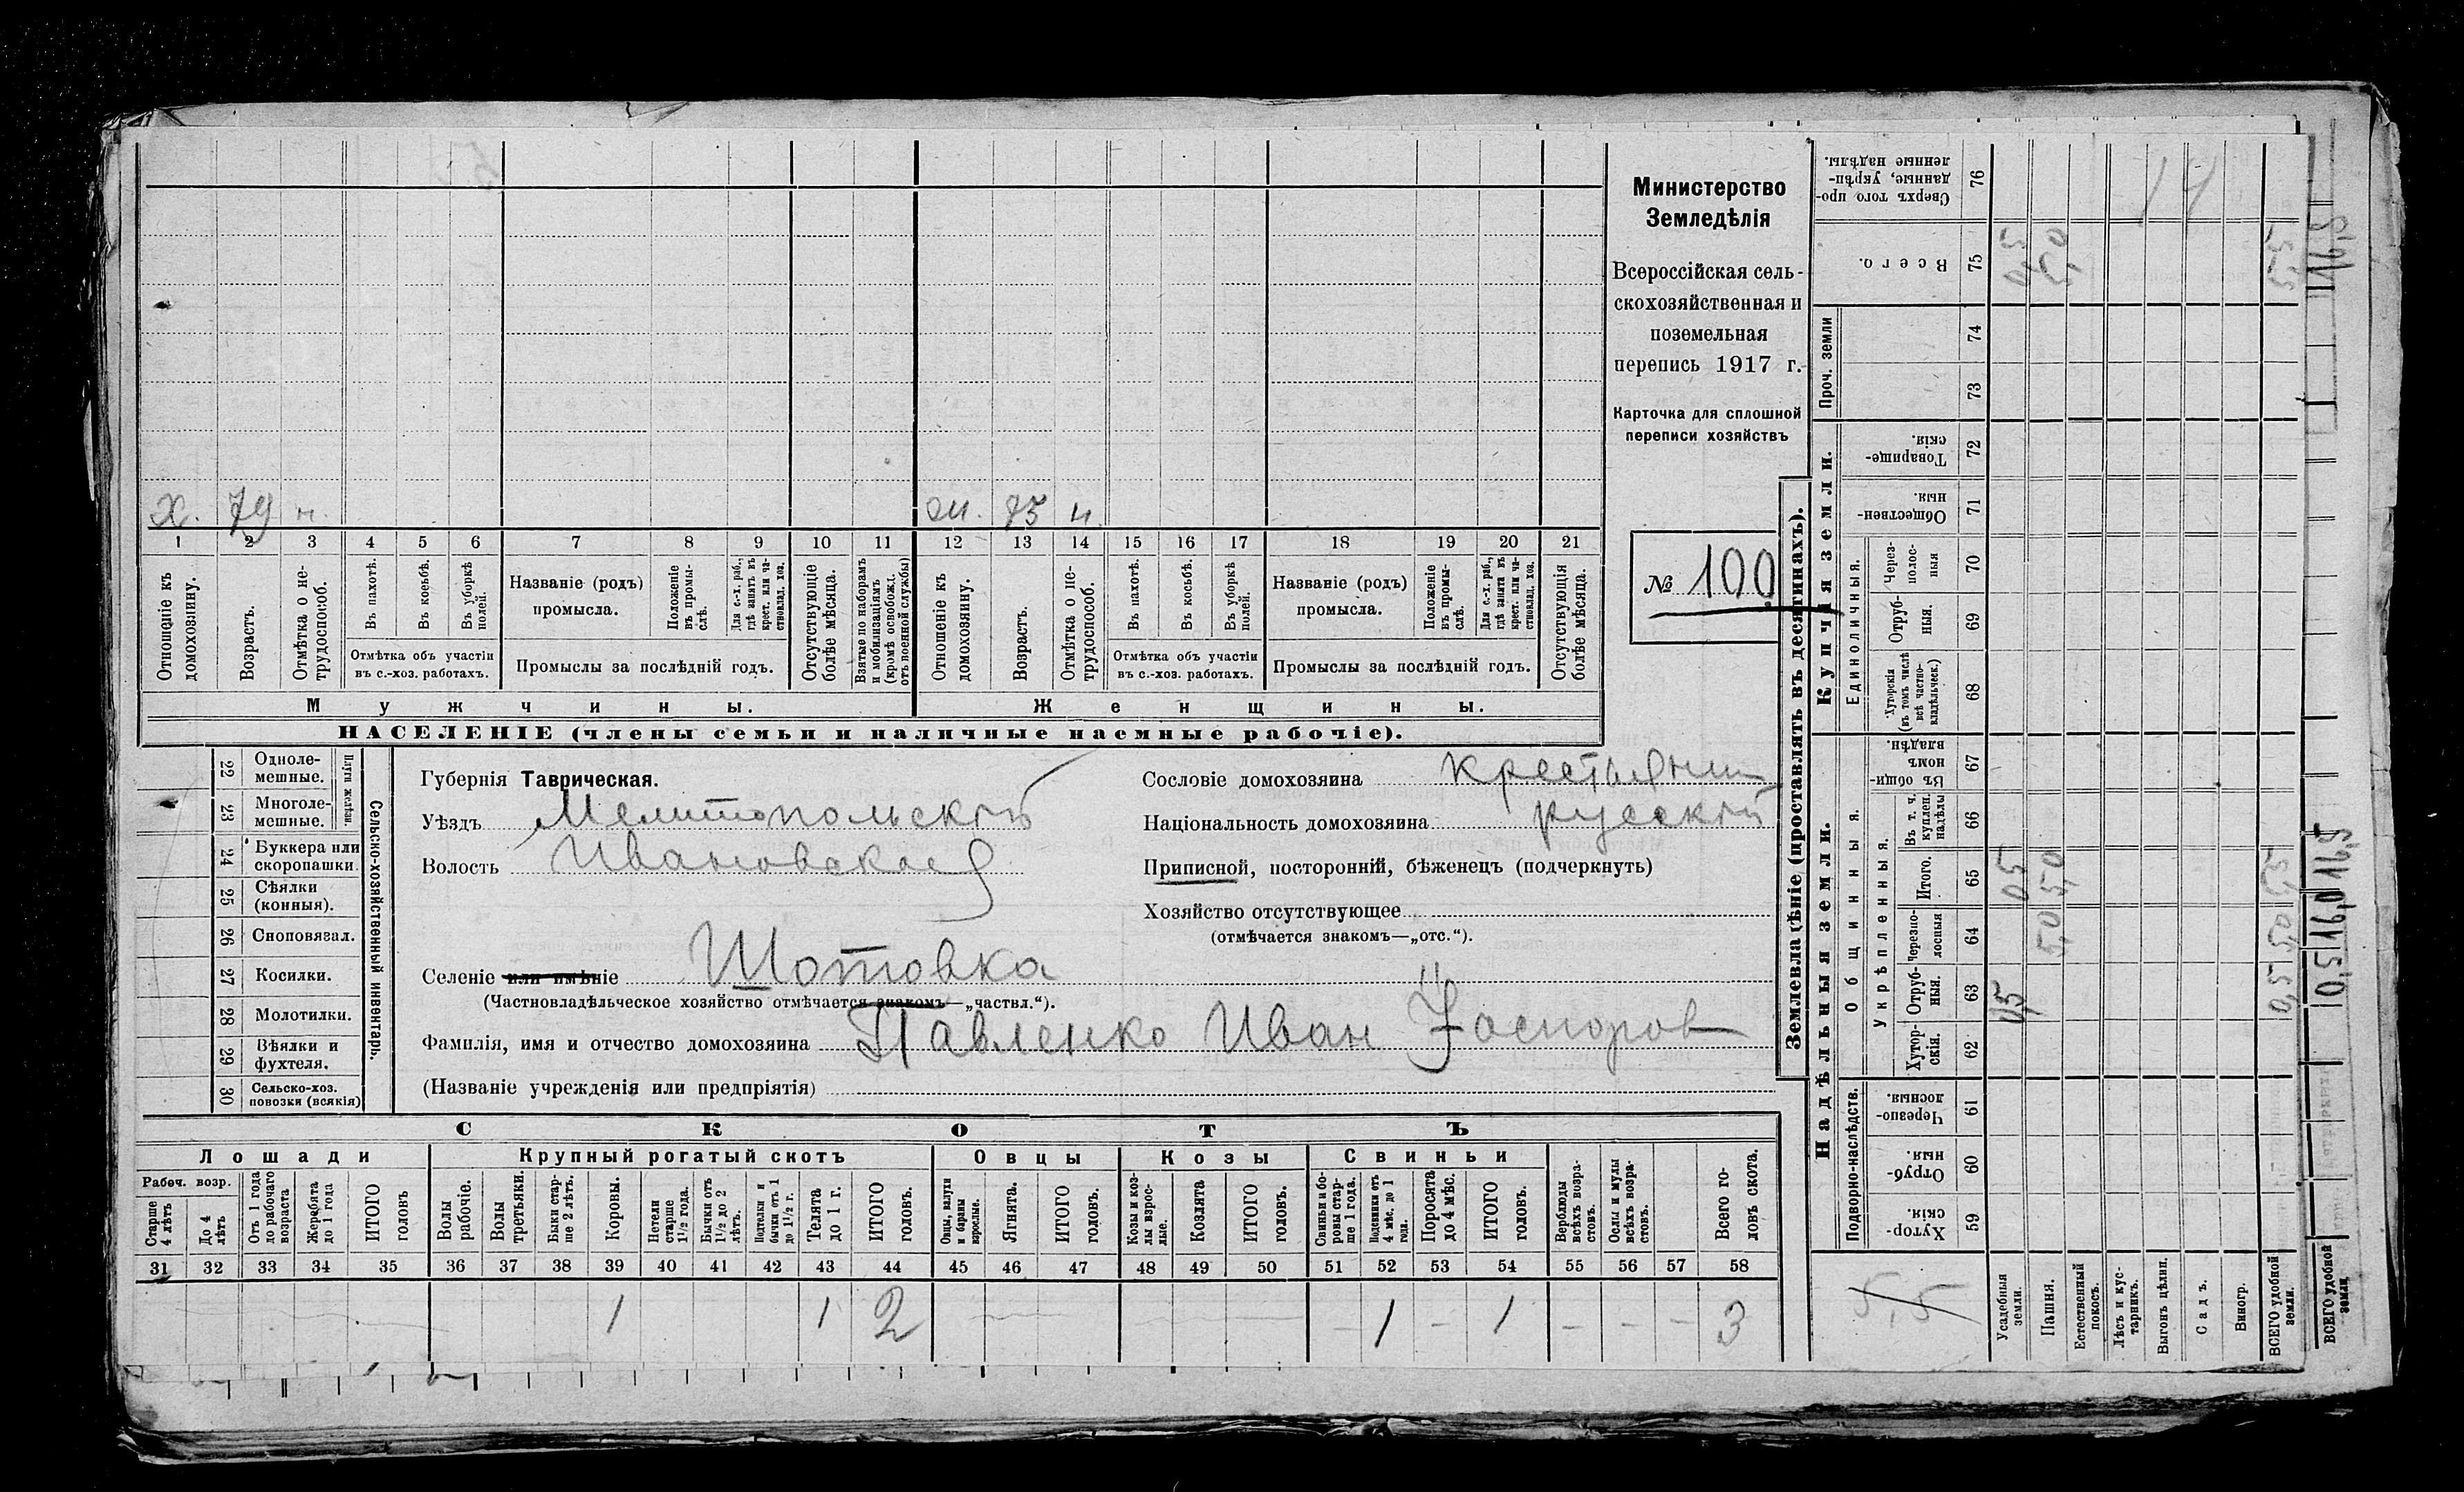 х. 79 н. ж. 75 н.
1 2 3 4 5 6 7 8 9 10 11 12 13 14 15 16 17 18 19 20 21
Отношеніе къ домохозяину.
Возрастъ.
Отмѣтка о нетрудоспособ.
Въ пахотѣ.
Въ косьбѣ.
Въ уборкѣ полей.
Отмѣтка объ участіи
въ с.-хоз. работахъ.
Названіе (родъ)
промысла.
Положеніе въ промыслѣ.
Для с.-х. раб., гдѣ занятъ въ крест. или частновлад. хоз.
Промыслы за послѣдній годъ.
Отсутствующіе болѣе мѣсяца.
Взятые по наборамъ и мобилизаціямъ (кромѣ освобожд. отъ военной службы)
Отношеніе къ домохозяину.
Возрастъ.
Отмѣтка о нетрудоспособ.
Въ пахотѣ.
Въ косьбѣ.
Въ уборкѣ полей.
Отмѣтка объ участіи
въ с.-хоз. работахъ.
Названіе (родъ)
промысла.
Положеніе въ промыслѣ.
Для с.-х. раб., гдѣ занята въ крест. или частновлад. хоз.
Промыслы за послѣдній годъ.
Отсутствующія болѣе мѣсяца.
Мужчины. Женщины.
НАСЕЛЕНІЕ (члены семьи и наличные наемные рабочіе).
Министерство
Земледѣлія
Всероссійская сель-
скохозяйственная и
поземельная
перепись 1917 г.
Карточка для сплошной
переписи хозяйствъ
№ 100
22 Одноле-
мешные.
23 Многоле-
мешные.
Плуги желѣзн.
24 Буккера или
скоропашки.
25 Сѣялки
(конныя).
26 Сноповязал.
27 Косилки.
28 Молотилки.
29 Вѣялки и
фухтеля.
30 Сельско-хоз.
повозки (всякія)
Сельско-хозяйственный инвентарь.
Губернія Таврическая.
Уѣздъ Мелитопольскій
Волость Ивановская
Селеніе или имѣніе Шотовка
(Частновладѣльческое хозяйство отмѣчается знакомъ—„частвл.“).
Фамилія, имя и отчество домохозяина Павленко Иван
(Названіе учрежденія или предпріятія)
Сословіе домохозяина крестьянин
Національность домохозяина русскій
Приписной, посторонній, бѣженецъ (подчеркнуть)
Хозяйство отсутствующее
(отмѣчается знакомъ—„отс.“).
СКОТЪ
Лошади Крупный рогатый скотъ Овцы Козы Свиньи
Рабоч. возр.
Старше 4 лѣтъ
До 4 лѣтъ
Отъ 1 года до рабочаго возраста
Жеребята до 1 года
ИТОГО головъ
Волы рабочіе.
Волы третьяки.
Быки старше 2 лѣтъ.
Коровы.
Нетели старше 1½ года.
Бычки отъ 1½ до 2 лѣтъ.
Подтелки и бычки отъ 1 до 1½ г.
Телята до 1 г.
ИТОГО головъ.
Овцы, валухи и бараны взрослые.
Ягнята.
ИТОГО головъ.
Козы и козлы взрослые.
Козлята
ИТОГО головъ.
Свиньи и боровы старше 1 года.
Подсвинки отъ 4 мѣс. до 1 года.
Поросята до 4 мѣс.
ИТОГО головъ.
Верблюды всѣхъ возрастовъ.
Ослы и мулы всѣхъ возрастовъ.
Всего головъ скота.
31 32 33 34 35 36 37 38 39 40 41 42 43 44 45 46 47 48 49 50 51 52 53 54 55 56 57 58
1 1 2 – 1 – 1 – – – 3
Землевладѣніе (проставлять въ десятинахъ).
Купчія земли.
Надѣльныя земли.
Сверхъ того проданные, укрѣпленные надѣлы. 76
14
Всего. 75 0,5 5,0 5,5
Проч. земли 74 73
Товарищескія. 72
Общественныя. 71
Единоличныя.
Черезполосныя 70
Отрубныя. 69
Хуторскія (въ томъ числѣ всѣ частновладѣльческ.) 68
Общинныя.
Въ общинномъ владѣн. 67
Укрѣпленныя.
Въ т. ч. куплен. надѣлы 66
Итого. 65 0,5 5,0 5,5
Черезполосныя 64 5,0 5,0
Отрубныя. 63 0,5 0,5
Хуторскія. 62
Подворно-наслѣдств.
Черезполосныя. 61
Отрубныя. 60
Хуторскія. 59
5,5
Усадебныя земли.
Пашня.
Естественный покосъ.
Лѣсъ и кустарникъ.
Выгонъ цѣлин.
Садъ.
Виногр.
ВСЕГО удобной земли.
ВСЕГО удобной земли.
0,5 16,0 16,5
16,5